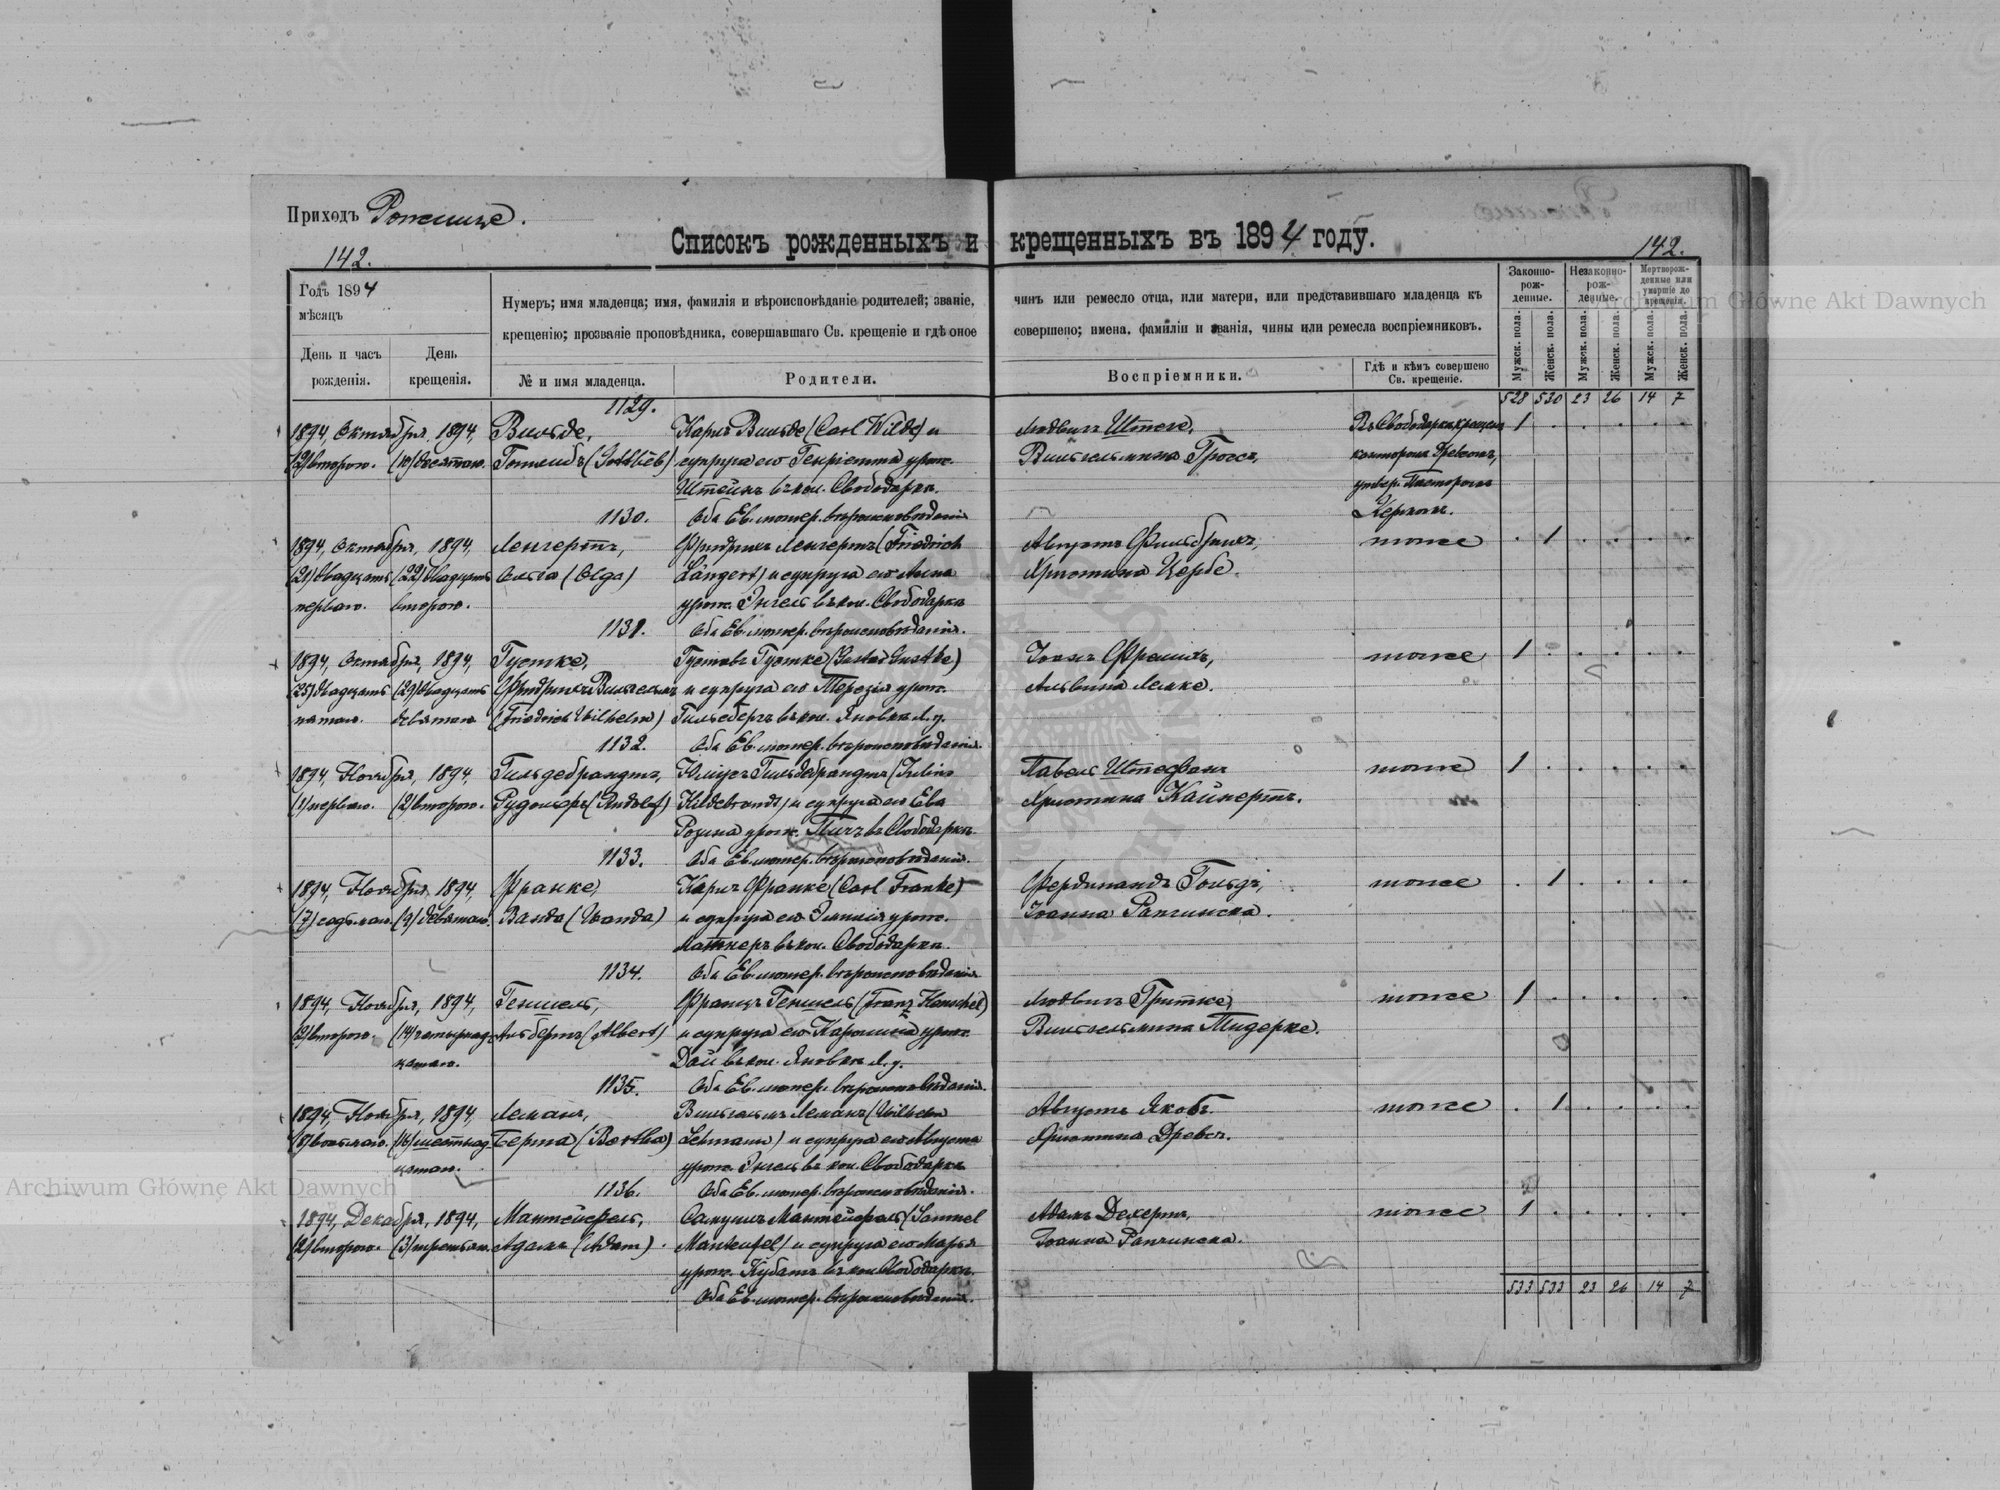 Приходъ Рожище.
142.
Списокъ рожденныхъ и крещенныхъ въ 1894 году.
142.
Годъ 1894
мѣсяцъ
День и часъ рожденія.
День крещенія.
Нумеръ; имя младенца; имя, фамилія и вѣроисповѣданіе родителей; званіе, чинъ или ремесло отца, или матери, или представившаго младенца къ
крещенію; прозваніе проповѣдника, совершавшаго Св. крещеніе и гдѣ оное совершено; имена, фамиліи и званія, чины или ремесла воспріемниковъ.
№ и имя младенца.
Родители.
Воспріемники.
Гдѣ и кѣмъ совершено Св. крещеніе.
Законно-рож-денные.
Незаконно-рож-денные.
Мертворож-денные или умершіе до крещенія.
Мужск. пола.
Женск. пола.
Мужск. пола.
Женск. пола.
Мужск. пола.
Женск. пола.
528 530 23 26 14 7
1129.
1894, Октября, 1894, Вильде, Карлъ Вильде (Carl Wilde) и Людвигъ Штеке, 1 . . . . .
(2) второго. (10) десятаго. Готлибъ (Gottlieb) супруга его Генріетта урож. Вильгельмина Гроссъ, канторомъ Древсомъ,
Штейнъ въ кол. Свободарка. утвер. Пасторомъ
1130. Оба Ев. лютер. вѣроисповѣданія Керкомъ.
1894, Октября, 1894, Ленгертъ, Фридрихъ Ленгертъ (Friedrich Августъ Фильбрихъ, тоже . 1 . . . .
(21) двадцать (22) двадцать Ольга (Olga) Längert) и супруга его Анна Христина Цербе.
перваго. второго. урож. Энгель въ кол. Свободарка
1131. Оба Ев. лютер. вѣроисповѣданія.
1894, Октября, 1894, Густке, Густавъ Густке (Gustav Gustke) Іоанъ Фрешихъ, тоже 1 . . . . .
(25) двадцать (29) двадцать Фридрихъ Вильгельмъ и супруга его Терезія урож. Альвина Лемке.
пятаго. девятаго. (Friedrich Wilhelm) Гильбергъ въ кол. Яновка Л. у.
1132. Оба Ев. лютер. вѣроисповѣданія.
1894, Ноября, 1894, Гильдебрандтъ, Юліусъ Гильдебрандтъ (Julius Павелъ Штефанъ тоже 1 . . . . .
(1) перваго. (2) второго. Рудольфъ (Rudolf) Hildebrandt) и супруга его Ева Христина Кайнертъ.
Розина урож. Пичъ въ Свободарка
1133. Оба Ев. лютер. вѣроисповѣданія.
1894, Ноября, 1894, Франке, Карлъ Франке (Carl Franke) Фердинандъ Гольцъ, тоже . 1 . . . .
(7) седьмаго. (9) девятаго. Ванда (Wanda) и супруга его Эмилія урож. Іоанна Рапчинска.
Латнеръ въ кол. Свободарка.
1134. Оба Ев. лютер. вѣроисповѣданія
1894, Ноября, 1894, Геншель, Францъ Геншель (Franz Henschel) Людвигъ Гритке, тоже 1 . . . . .
(2) второго. (14) четырнад- Альбертъ (Albert) и супруга его Каролина урож. Вильгельмина Тидерке.
цатаго. Дай въ кол. Яновка Л. у.
1135. Оба Ев. лютер. вѣроисповѣданія.
1894, Ноября, 1894, Леманъ, Вильгельмъ Леманъ (Wilhelm Августъ Якобъ тоже . 1 . . . .
(8) восьмаго. (16) шестнад- Берта (Bertha) Lehmann) и супруга его Августа Христина Древсъ.
цатаго. урож. Энгель въ кол. Свободарка
1136. Оба Ев. лютер. вѣроисповѣданія.
1894, Декабря, 1894, Мантейфель, Самуилъ Мантейфель (Samuel Адамъ Дехертъ, тоже 1 . . . . .
(2) второго. (3) третьяго. Адамъ (Adam). Manteufel) и супруга его Марья Іоанна Рапчинска.
урож. Кубатъ въ кол. Свободарка.
Оба Ев. лютер. вѣроисповѣданія.
533 533 23 26 14 7
Archiwum Główne Akt Dawnych
Archiwum Główne Akt Dawnych